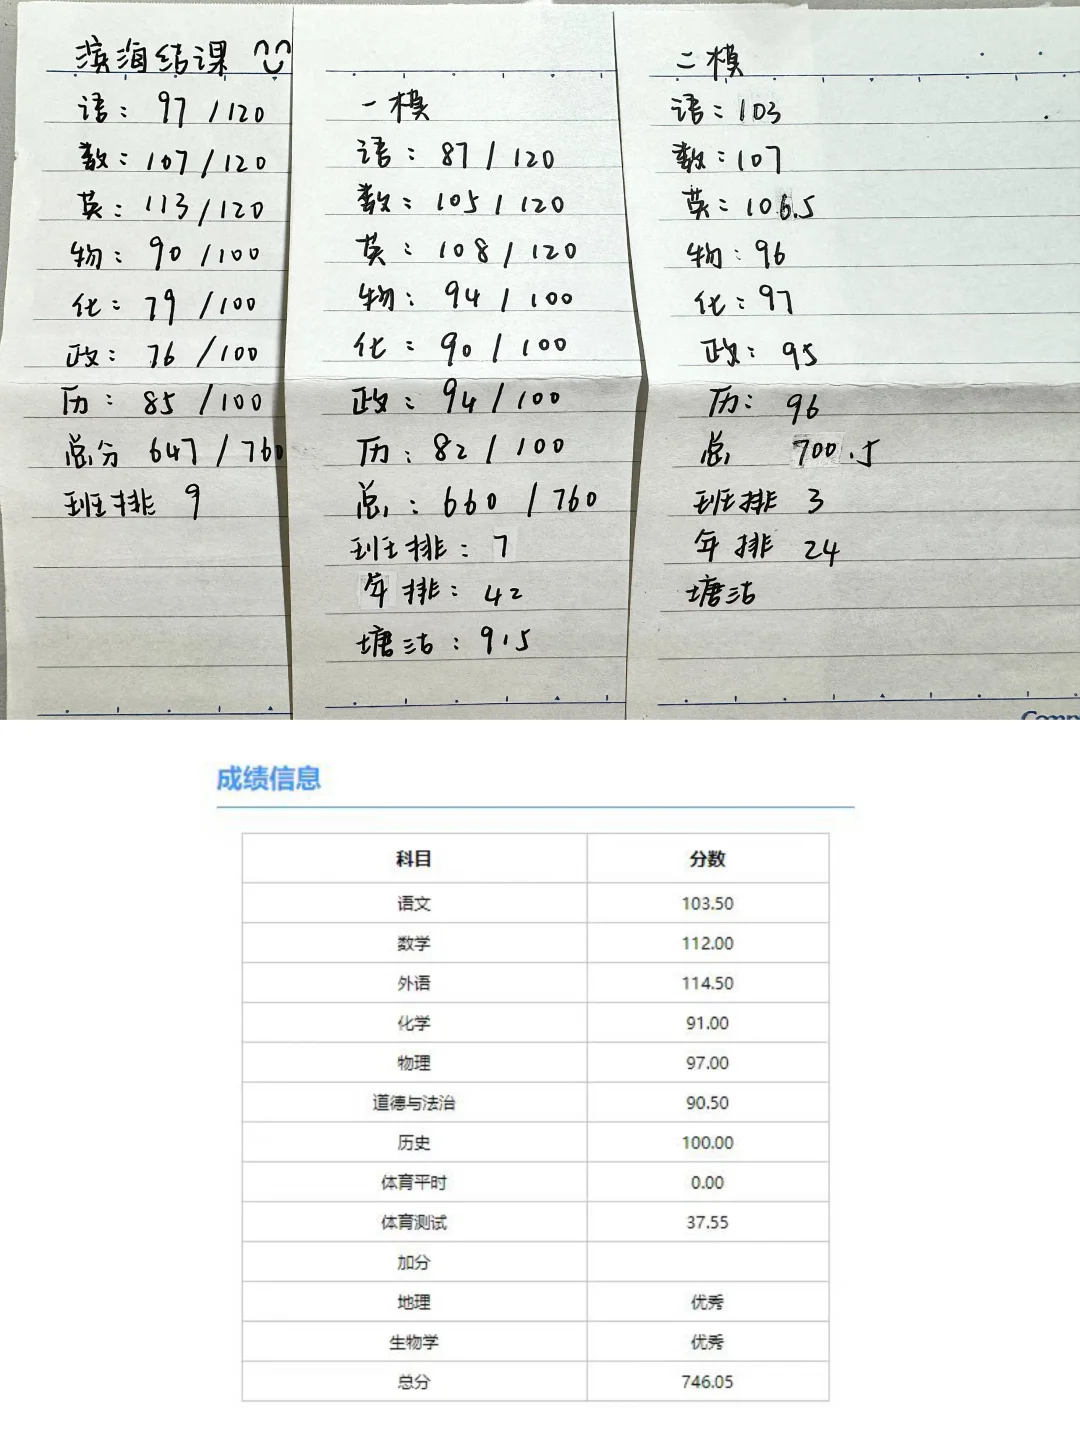 滨海结课
语：97/120
数：107/120
英：113/120
物：90/100
化：79/100
政：76/100
历：85/100
总分 647/760
班排 9
一模
语：87/120
数：105/120
英：108/120
物：94/100
化：90/100
政：94/100
历：82/100
总：660/760
班排：7
年排：42
塘沽：915
二模
语：103
数：107
英：106.5
物：96
化：97
政：95
历：96
总 700.5
班排 3
年排 24
塘沽
成绩信息
科目 分数
语文 103.50
数学 112.00
外语 114.50
化学 91.00
物理 97.00
道德与法治 90.50
历史 100.00
体育平时 0.00
体育测试 37.55
加分
地理 优秀
生物学 优秀
总分 746.05